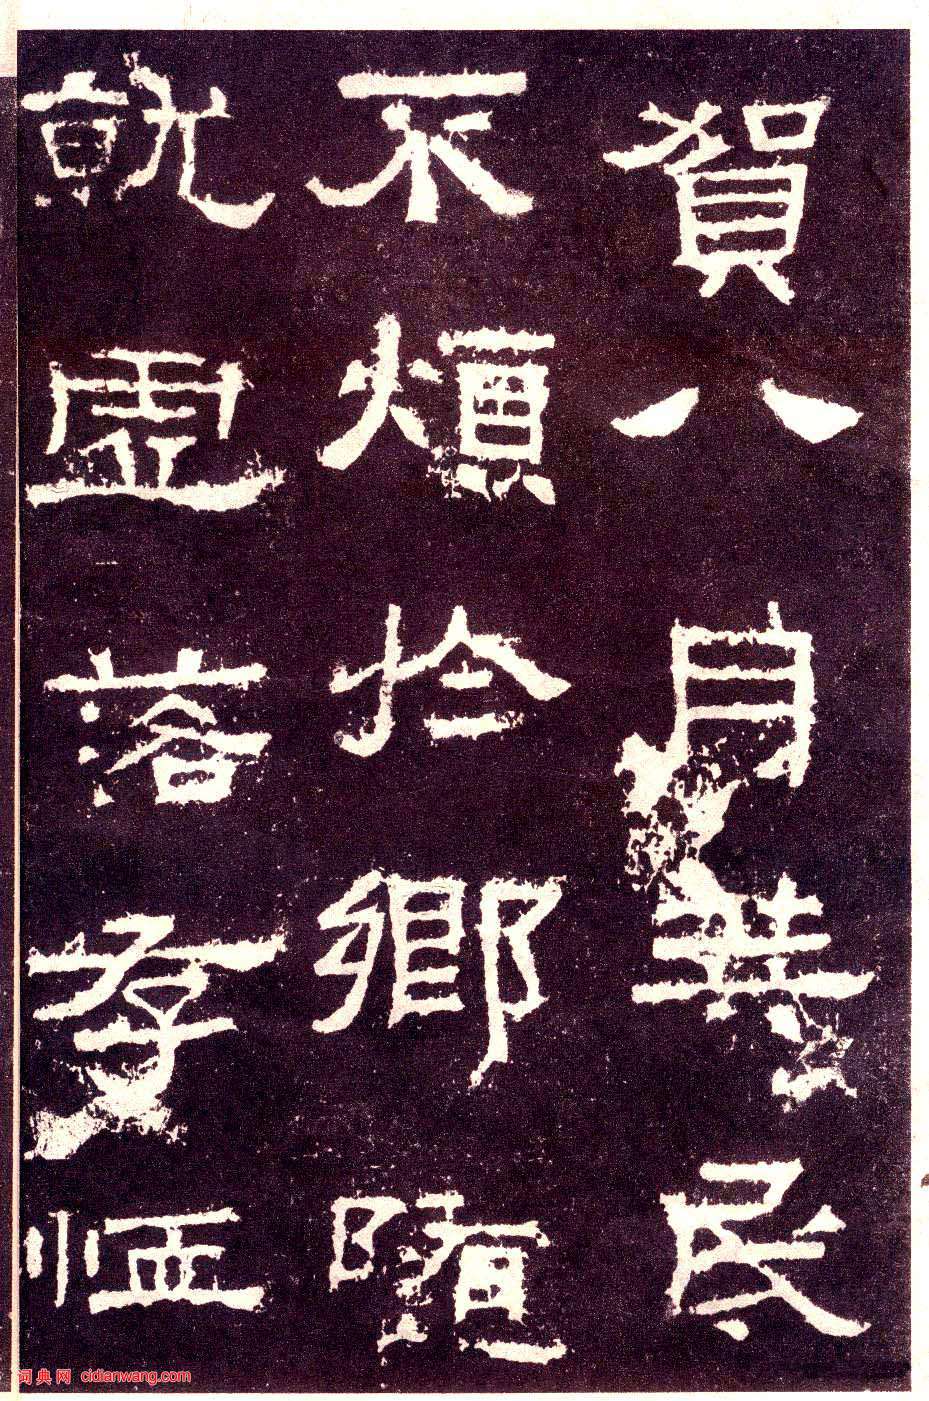 賀八月筭民
不煩扵鄉隨
就虛落存恤
词典网 cidianwang.com